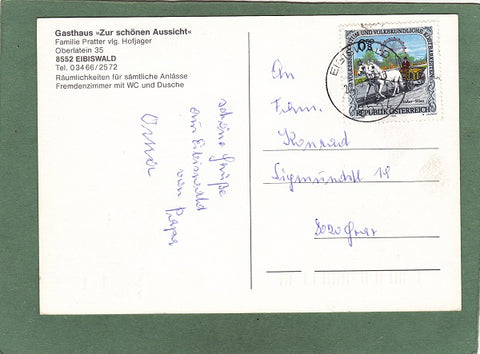 Gasthaus »Zur schönen Aussicht«
Familie Pratter vlg. Hofjager
Oberlatein 35
8552 EIBISWALD
Tel. 03466/2572
Räumlichkeiten für sämtliche Anlässe
Fremdenzimmer mit WC und Dusche
schöne Grüße
aus Eibiswald
von Papa
REPUBLIK ÖSTERREICH
EIBISWALD
An
Fam.
Konrad
Sigmundstl 18
8020 Graz